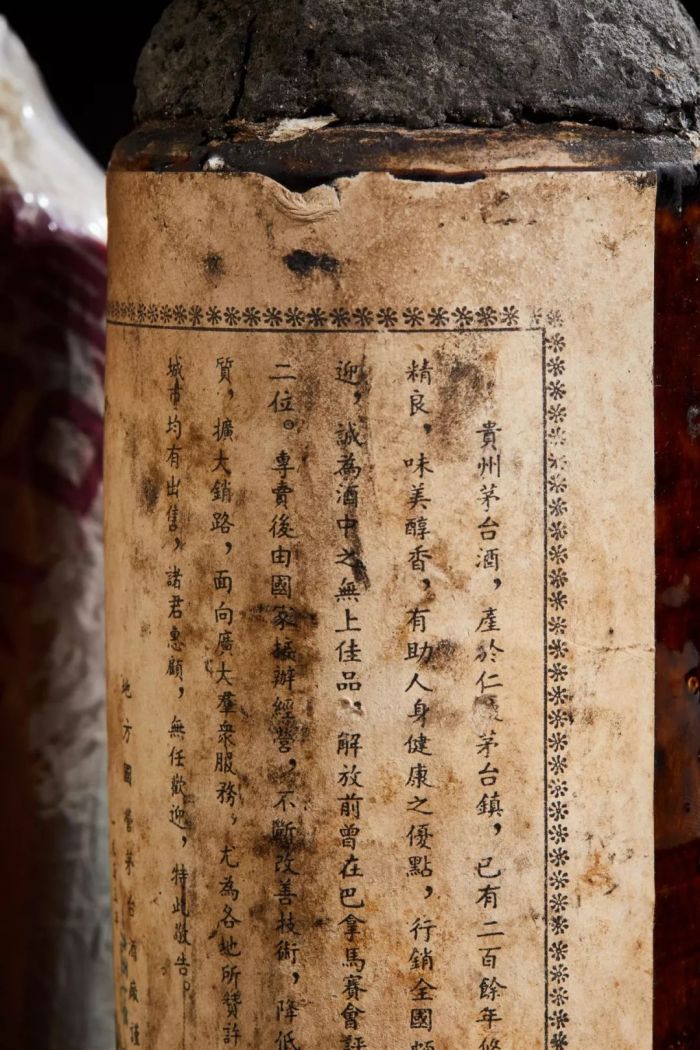 貴州茅台酒，產於仁 茅台鎮，已有二百餘年悠
精良，味美醇香，有助人身健康之優點，行銷全國頗
迎，誠為酒中之無上佳品，解放前曾在巴拿馬賽會評
二位。專賣後由國家接辦經營，不斷改善技術，降低
質，擴大銷路，面向廣大羣衆服務，尤為各地所贊許
城市均有出售，諸君惠顧，無任歡迎，特此敬告。
地方國營茅台酒廠謹